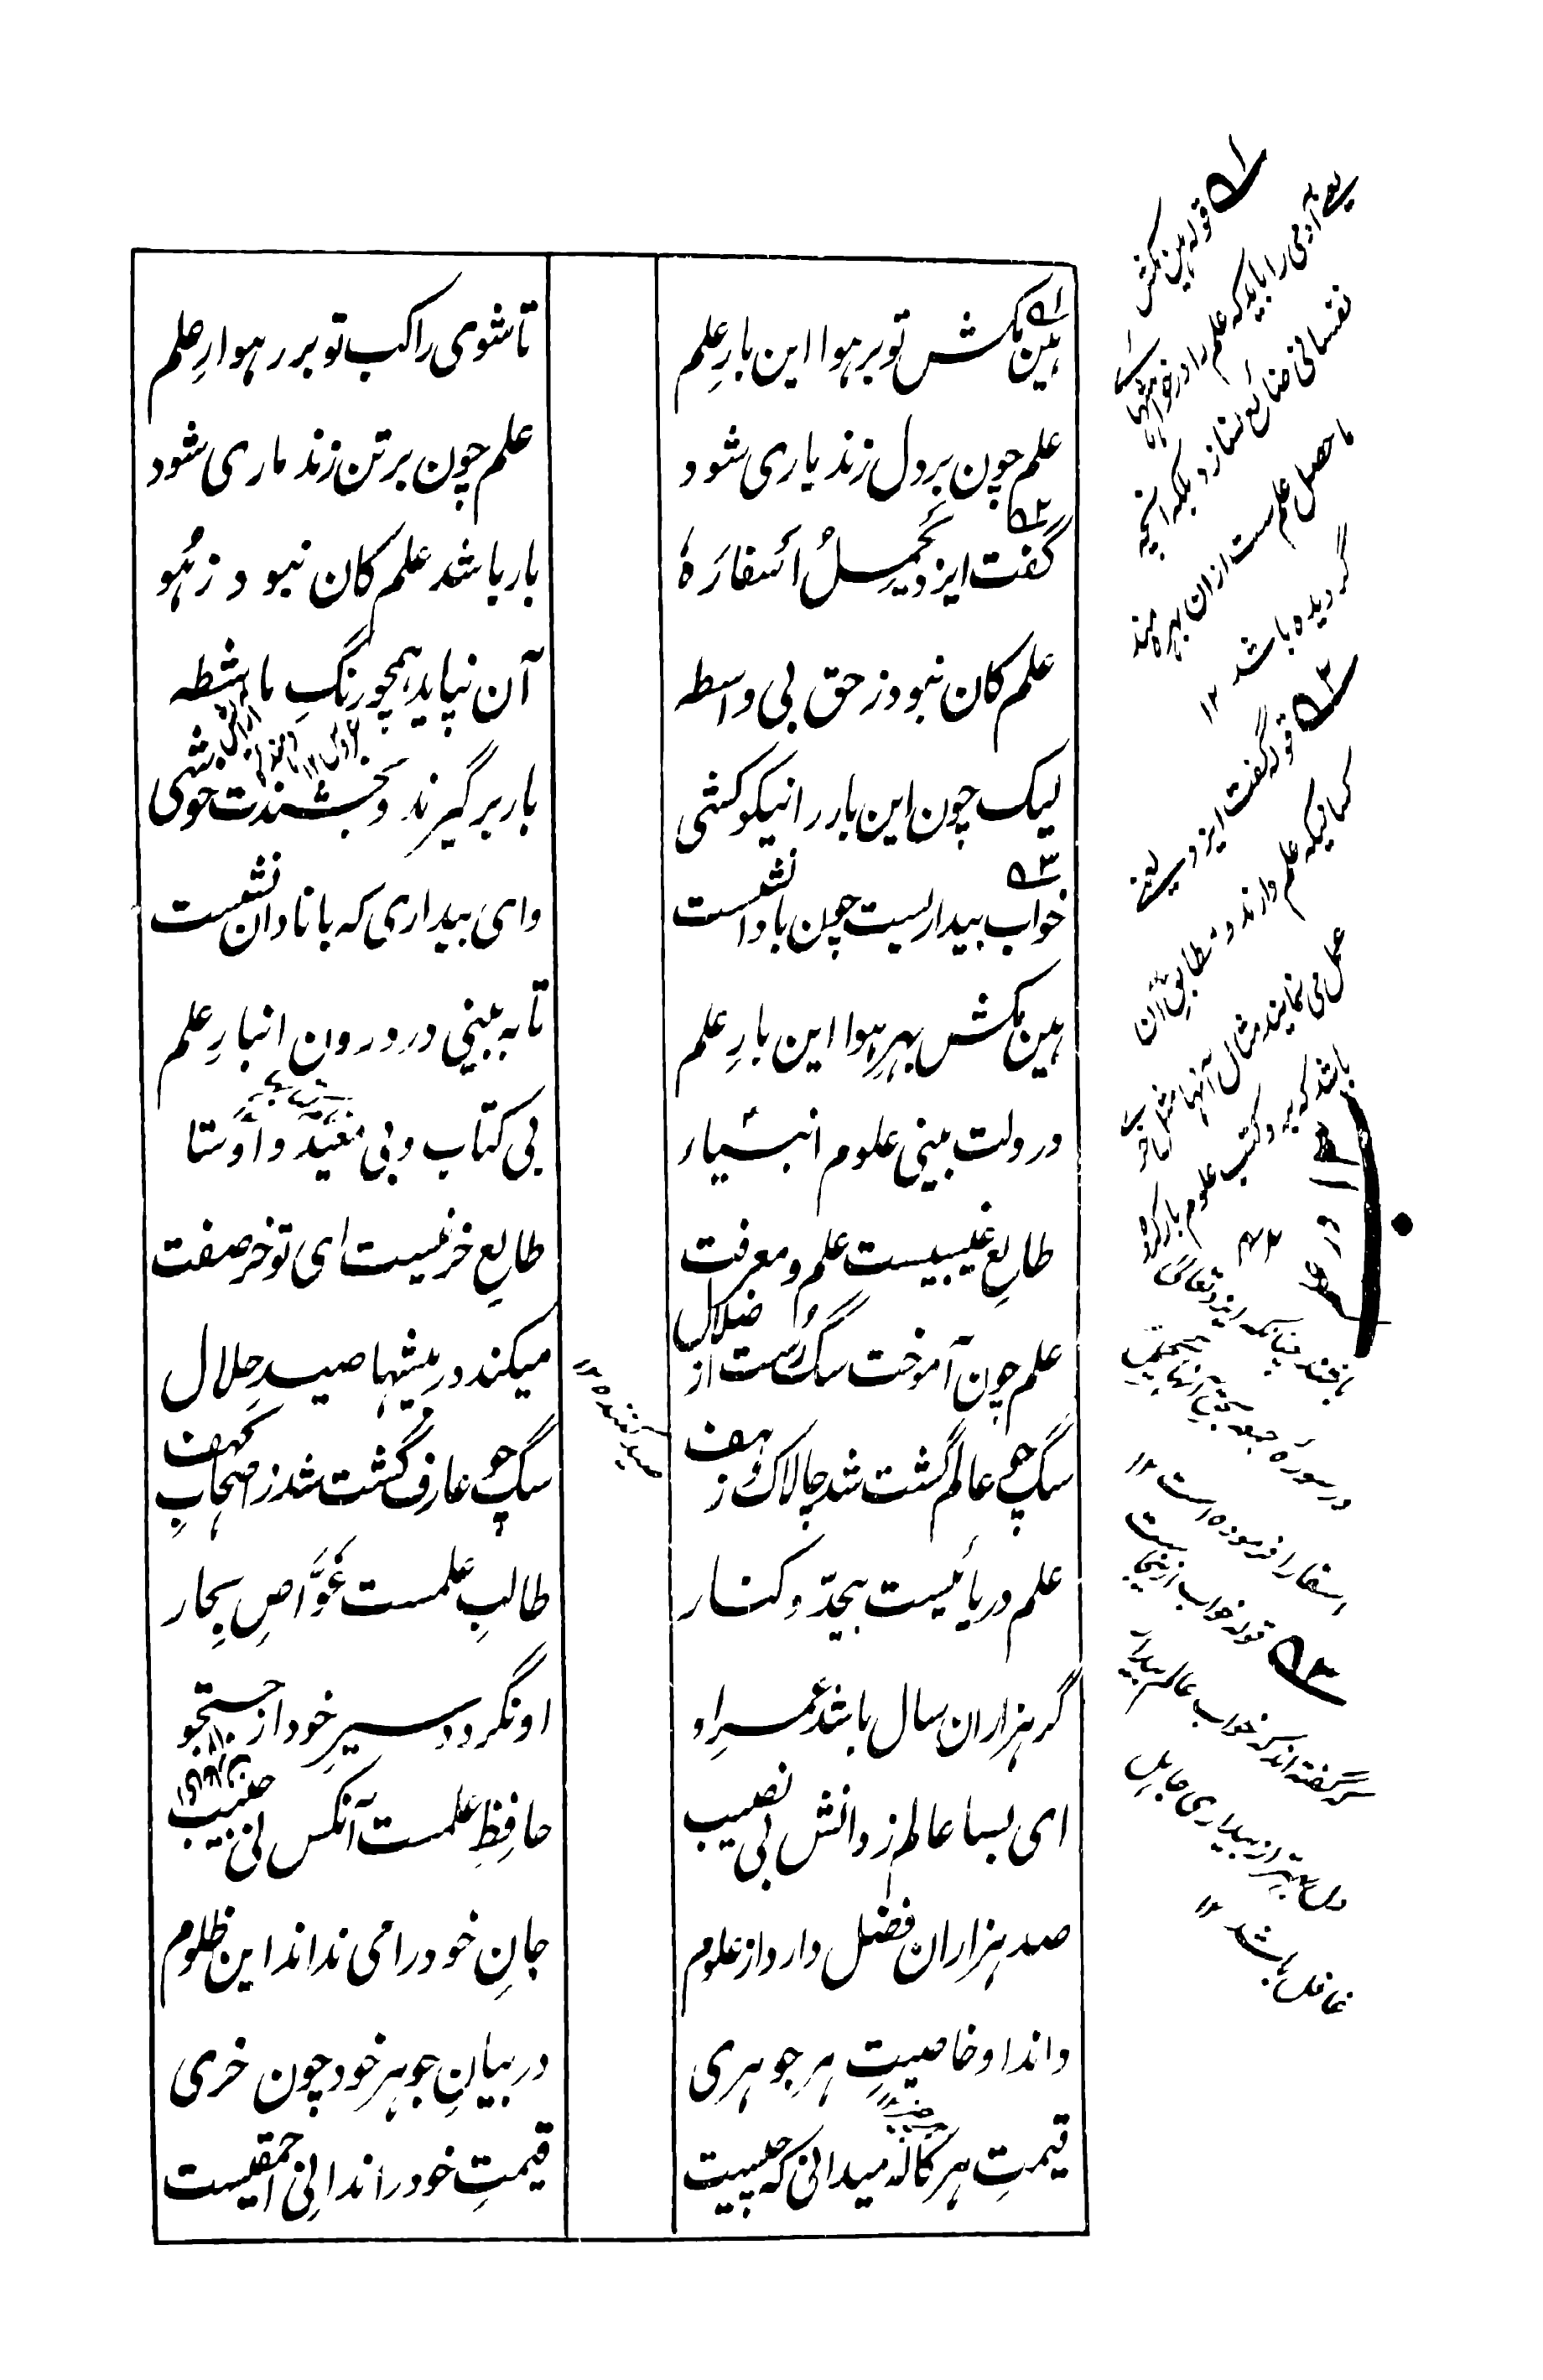 هین مکش تو بر هوا این بارِ علم
تا شوی راکب تو بر رهوارِ علم
علم چون بر دل زند یاری شود
علم چون بر تن زند ماری شود
گفت ایزد یَحمِلُ اَسفارَهٗ
بار باشد علم کان نبود ز هُو
علم کان نبود ز حق بی واسطه
آن نپاید همچو رنگِ ماشطه
لیک چون این بار را نیکو کشی
بار برگیرند و بخشندت خوشی
خواب بیداریست چون با دانشست
وای بیداری که با نادان نشست
هین مکش بهرِ هوا این بارِ علم
تا به بینی در درون انبارِ علم
در دلت بینی علوم انبیاء
بی کتاب و بی مُعید و اوستا
طالعِ غیبیست علم و معرفت
طالعِ خر نیست ای تو خر صفت
علم چون آموخت سگ رست از ضلال
میکند در بیشها صیدِ حلال
سگ چو عالم گشت شد چالاک و زهف
سگ چو عارف گشت شد ز اصحابِ کهف
صید کننده ۱۲
علم دریائیست بیحدّ و کنار
طالبِ علمست غَوّاصِ بحار
گر هزاران سال باشد عمرِ او
او نگردد سیرِ خود از جستجو
ای بسا عالم ز دانش بی نصیب
حافِظِ علمست آنکس نی حبیب
صد هزاران فضل دارد از علوم
جانِ خود را می نداند این ظلوم
داند او خاصیتِ هر جوهری
در بیانِ جوهرِ خود چون خری
قیمتِ هر کاله میدانی که چیست
قیمتِ خود را ندانی احمقیست
۱ قوله هین مکش
یعنی آدمی را باید که علم را در خواهشهای
نفسانی ضائع نسازد بلکه آنچه
ماحصل علمست از ان بهره‌مند
گردیده باشد ۱۲
۲ قوله گفت ایزد یعنی
کسانیکه علم دارند و نه مطابق آن
عمل می نمایند مثال آنها مثل خر
باشد که برو کتب علوم بار کرده
باشند چنانکه ایزد تعالی
در سورهٔ جمعه بحق آنها یحمل
اسفارا فرموده است ۱۲
۳ قوله خواب از ینجاست
که گفته اند که خواب عالم بیدار
دل بهتر از بیداری جاهل
غافل باشد ۱۲